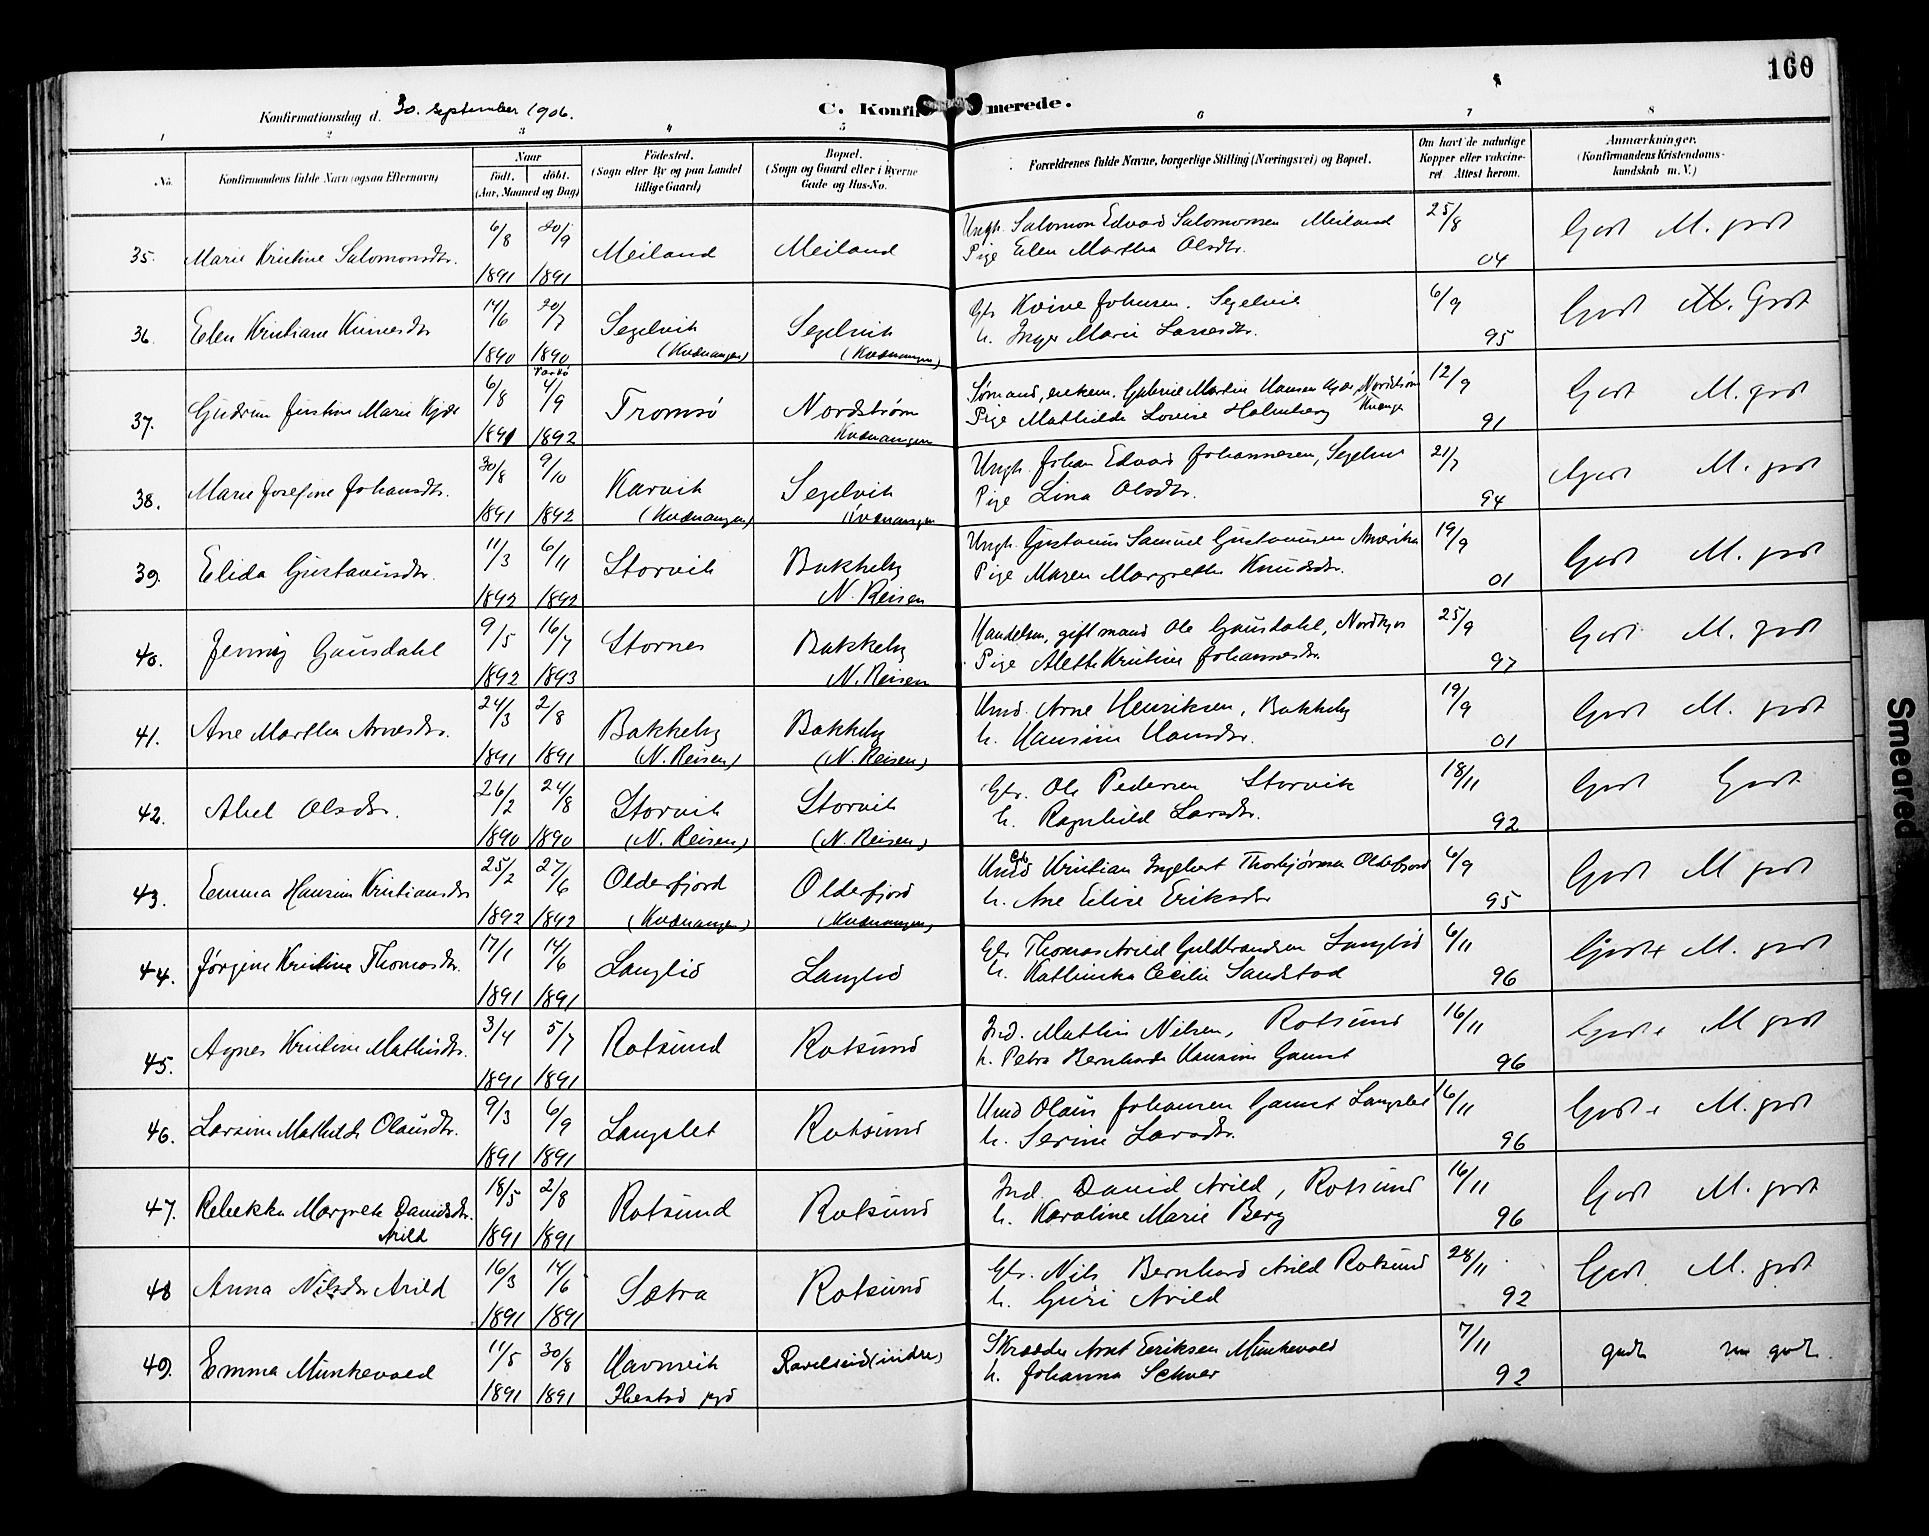 160
Konfirmationsdag d. 30. september 1906.
C. Konfirmerede.
1 2 3 4 5 6 7 8
No.
Konfirmandens fulde Navn (ogsaa Efternavn)
Naar
født. døbt.
(Aar, Maaned og Dag)
Fødested.
(Sogn eller By og paa Landet
tillige Gaard)
Bopæl.
(Sogn og Gaard eller i Byerne
Gade og Hus-No.
Forældrenes fulde Navne, borgerlige Stilling (Næringsvei) og Bopæl.
Om havt de naturlige
Kopper eller vaccine-
ret Attest herom.
Anmærkninger.
(Konfirmandens Kristendoms-
kundskab m. V.)
35. Marie Kristine Salomonsdtr. 6/8 1891 20/9 1891 Meiland Meiland
Ungk. Salomon Edvard Salomonsen Meiland
Pige Elen Martha Olsdtr.
25/8 04 Godt M. godt
36. Elen Kristiane 14/6 1890 20/7 1890 Segelvik (Kvænangen) Segelvik (Kvænangen)
Gbr. Johnsen. Segelvik
h. Inger Marie Larsdtr.
6/9 95 Godt M. Godt
37. Gudrun Justine Marie 6/8 1891 Vardø 4/9 1892 Tromsø Nordstrøm Kvænangen
Sømand, enkem. Gabriel Martin Hansen Nordstrøm
Pige Mathilde Lovise Holmberg
12/9 91 Godt M. godt
38. Marie Josefine Johansdtr. 30/8 1891 9/10 1892 Karvik (Kvænangen) Segelvik Kvænangen
Ungk. Johan Edvard Johannesen, Segelvik
Pige Lina Olsdtr.
21/7 94 Godt M. godt
39. Elida Gustavusdtr. 11/3 1892 6/11 1892 Storvik Bakkeby N. Reisen
Ungk. Gustavus Samuel Gustavusen Amerika
Pige Maren Margrethe Knudsdtr.
19/9 01 Godt M. godt
40. Jenny Gausdahl 9/5 1892 16/7 1893 Stornes Bakkeby N. Reisen
Handelsm, gift mand Ole Gausdahl,
Pige Alette Kristine Johannesdtr.
25/9 97 Godt M. godt
41. Ane Martha Arnesdtr. 24/3 1891 2/8 1891 Bakkeby (N. Reisen) Bakkeby (N. Reisen)
Arne Henriksen, Bakkeby
h. Hansine Hansdtr.
19/9 01 Godt M. godt
42. Abel Olsdtr. 26/2 1890 24/8 1890 Storvik (N. Reisen) Storvik (N. Reisen)
Gbr. Ole Pedersen Storvik
h. Ragnhild Larsdtr.
18/11 92 Godt Godt
43. Emma Hansine Kristiansdtr 25/2 1892 27/6 1892 Olderfjord (Kvænangen) Olderfjord (Kvænangen)
Kristian Ingebert Thorbjørnsen Olderfjord
h. Ane Elise Eriksdtr
6/9 95 Godt M godt
44. Jørgine Kristine Thomasdtr. 17/1 1891 14/6 1891 Langlid Langlid
Gbr Thomas Arild Guldbrandsen Langlid
h. Kathinka Cecilie Sandstad
6/11 96 Godt + M. godt
45. Agnes Kristine Mathisdtr. 3/4 1891 5/7 1891 Rotsund Rotsund
Ind. Mathis Nilsen, Rotsund
h. Petra Bernharde Hansine Gamst
16/11 96 Godt + M godt
46. Larsine Mathilde Olausdtr. 9/3 1891 6/9 1891 Langslet Rotsund
Olaus Johansen Gamst Langslet
h. Serine Larsdtr.
16/11 96 Godt + M. godt
47. Rebekka Margrete Davidsdtr.
Arild 18/5 1891 2/8 1891 Rotsund Rotsund
Ind. David Arild, Rotsund
h. Karoline Marie Berg
16/11 96 Godt M. godt
48 Anna Nilsdtr Arild 16/3 1891 14/6 1891 Sætra Rotsund
Gbr. Nils Bernhard Arild Rotsund
h. Guri Arild
28/11 92 Godt M. godt
49. Emma Munkevold 11/5 1891 30/8 1891 Havnvik Ibestad pgd Ravelseid (indre)
Skrædder Arnt Eriksen Munkevold
h. Johanna
7/11 92 godt m godt.
Smeared